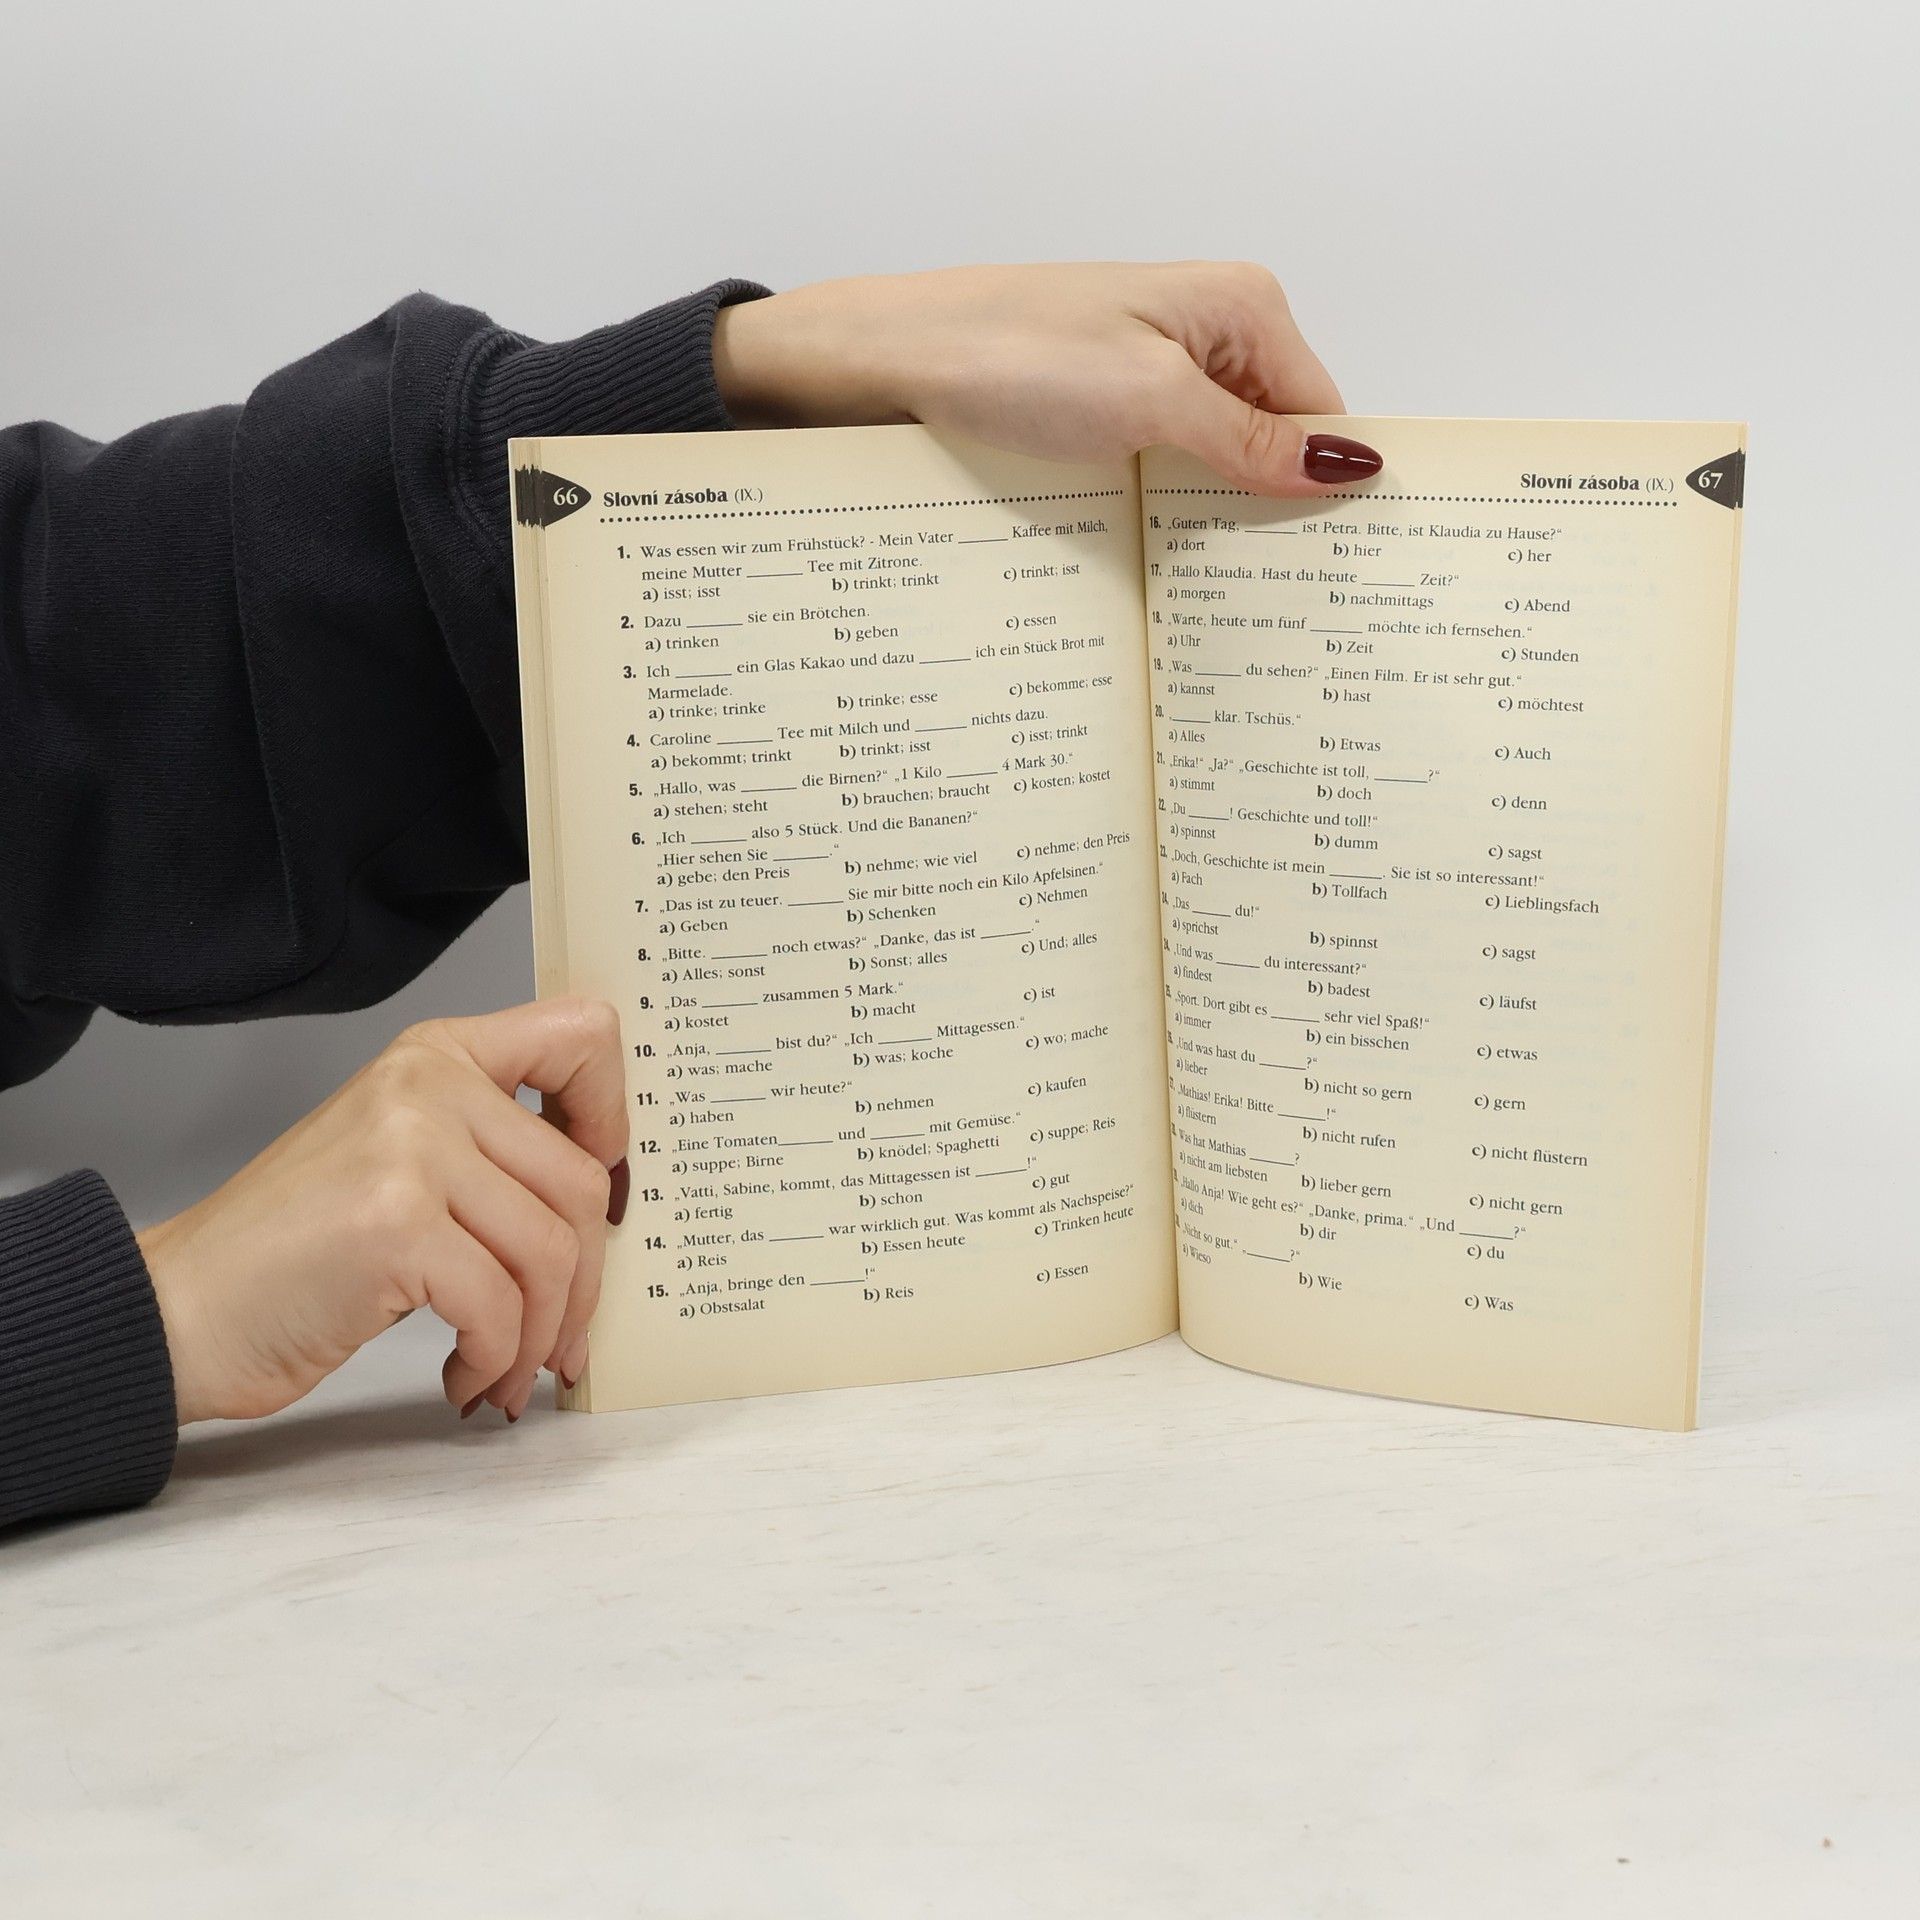 66 Slovní zásoba (IX.)
1. Was essen wir zum Frühstück? - Mein Vater ______ Kaffee mit Milch,
meine Mutter ______ Tee mit Zitrone.
a) isst; isst b) trinkt; trinkt c) trinkt; isst
2. Dazu ______ sie ein Brötchen.
a) trinken b) geben c) essen
3. Ich ______ ein Glas Kakao und dazu ______ ich ein Stück Brot mit
Marmelade.
a) trinke; trinke b) trinke; esse c) bekomme; esse
4. Caroline ______ Tee mit Milch und ______ nichts dazu.
a) bekommt; trinkt b) trinkt; isst c) isst; trinkt
5. „Hallo, was ______ die Birnen?“ „1 Kilo ______ 4 Mark 30.“
a) stehen; steht b) brauchen; braucht c) kosten; kostet
6. „Ich ______ also 5 Stück. Und die Bananen?“
„Hier sehen Sie ______.“
a) gebe; den Preis b) nehme; wie viel c) nehme; den Preis
7. „Das ist zu teuer. ______ Sie mir bitte noch ein Kilo Apfelsinen.“
a) Geben b) Schenken c) Nehmen
8. „Bitte. ______ noch etwas?“ „Danke, das ist ______.“
a) Alles; sonst b) Sonst; alles c) Und; alles
9. „Das ______ zusammen 5 Mark.“
a) kostet b) macht c) ist
10. „Anja, ______ bist du?“ „Ich ______ Mittagessen.“
a) was; mache b) was; koche c) wo; mache
11. „Was ______ wir heute?“
a) haben b) nehmen c) kaufen
12. „Eine Tomaten______ und ______ mit Gemüse.“
a) suppe; Birne b) knödel; Spaghetti c) suppe; Reis
13. „Vatti, Sabine, kommt, das Mittagessen ist ______!“
a) fertig b) schon c) gut
14. „Mutter, das ______ war wirklich gut. Was kommt als Nachspeise?“
a) Reis b) Essen heute c) Trinken heute
15. „Anja, bringe den ______!“
a) Obstsalat b) Reis c) Essen
Slovní zásoba (IX.) 67
16. „Guten Tag, ______ ist Petra. Bitte, ist Klaudia zu Hause?“
a) dort b) hier c) her
17. „Hallo Klaudia. Hast du heute ______ Zeit?“
a) morgen b) nachmittags c) Abend
18. „Warte, heute um fünf ______ möchte ich fernsehen.“
a) Uhr b) Zeit c) Stunden
19. „Was ______ du sehen?“ „Einen Film. Er ist sehr gut.“
a) kannst b) hast c) möchtest
20. „______ klar. Tschüs.“
a) Alles b) Etwas c) Auch
21. „Erika!“ „Ja?“ „Geschichte ist toll, ______?“
a) stimmt b) doch c) denn
22. „Du ______! Geschichte und toll!“
a) spinnst b) dumm c) sagst
„Doch, Geschichte ist mein ______. Sie ist so interessant!“
a) Fach b) Tollfach c) Lieblingsfach
„Das ______ du!“
a) sprichst b) spinnst c) sagst
„Und was ______ du interessant?“
a) findest b) badest c) läufst
„Sport. Dort gibt es ______ sehr viel Spaß!“
a) immer b) ein bisschen c) etwas
„Und was hast du ______?“
a) lieber b) nicht so gern c) gern
„Mathias! Erika! Bitte ______!“
a) flüstern b) nicht rufen c) nicht flüstern
Was hat Mathias ______?
a) nicht am liebsten b) lieber gern c) nicht gern
„Hallo Anja! Wie geht es?“ „Danke, prima.“ „Und ______?“
a) dich b) dir c) du
„Nicht so gut.“ „______?“
a) Wieso b) Wie c) Was